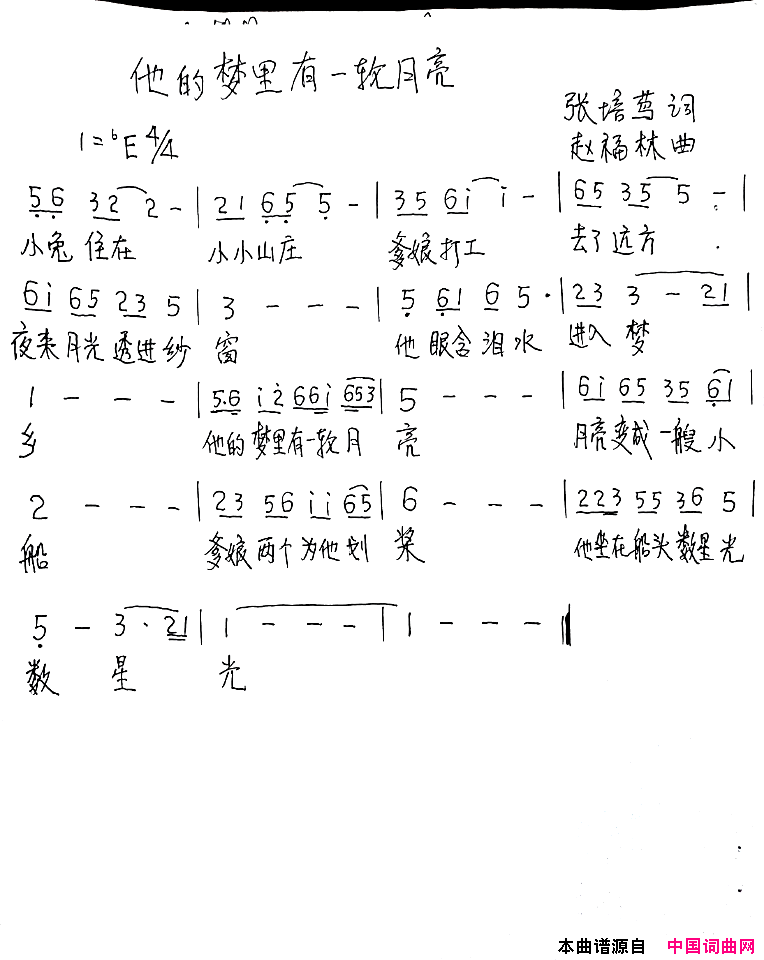 他的梦里有一轮月亮
张培茑词
1=ᵇE 4/4
赵福林曲
5̣6̣ 32 2 - | 21 6̣5̣ 5̣ - | 35 6i i - | 65 35 5 - |
小兔住在 小小山庄 爹娘打工 去了远方
6i 65 23 5 | 3 - - - | 5̣ 6̣1 6̣ 5· | 23 3 - 21 |
夜来月光透进纱 窗 他眼含泪水 进入梦
1 - - - | 5·6 i2̇ 66i 653 | 5 - - - | 6i 65 35 6̣1 |
乡 他的梦里有一轮月 亮 月亮变成一艘小
2 - - - | 23 56 ii 65 | 6 - - - | 223 55 36 5 |
船 爹娘两个为他划 桨 他坐在船头数星光
5̣ - 3· 21 | 1 - - - | 1 - - - ‖
数 星 光
本曲谱源自 中国词曲网